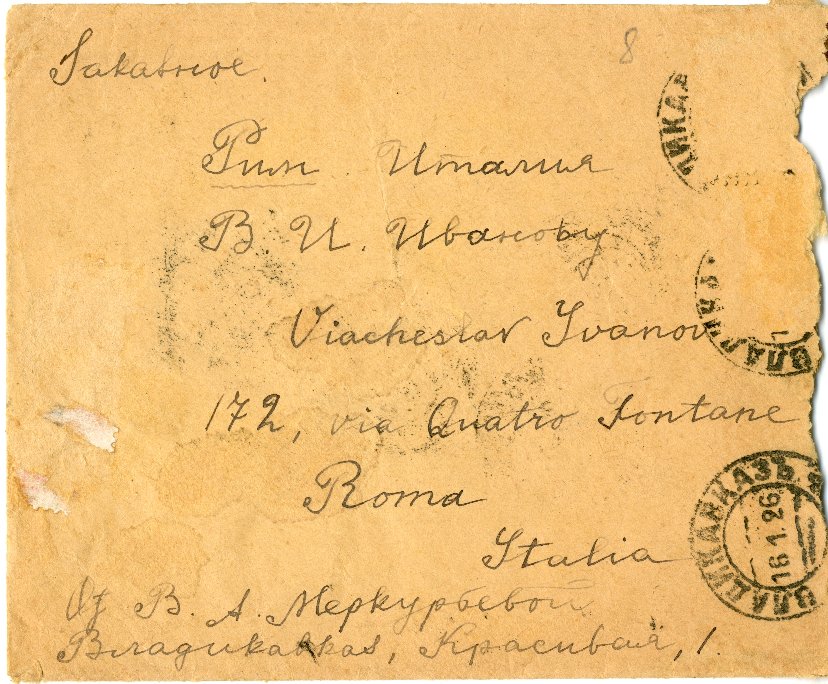 Заказное.
8
Рим Италия
В. И. Иванову
Viacheslav Ivanov
172, via Quatro Fontane
Roma
Italia
От В. А. Меркурьевой
Владикавказ, Красивая, 1.
ДИКАВ
ВЛАДИКА
ВЛАДИКАВКАЗЪ
16.1.26